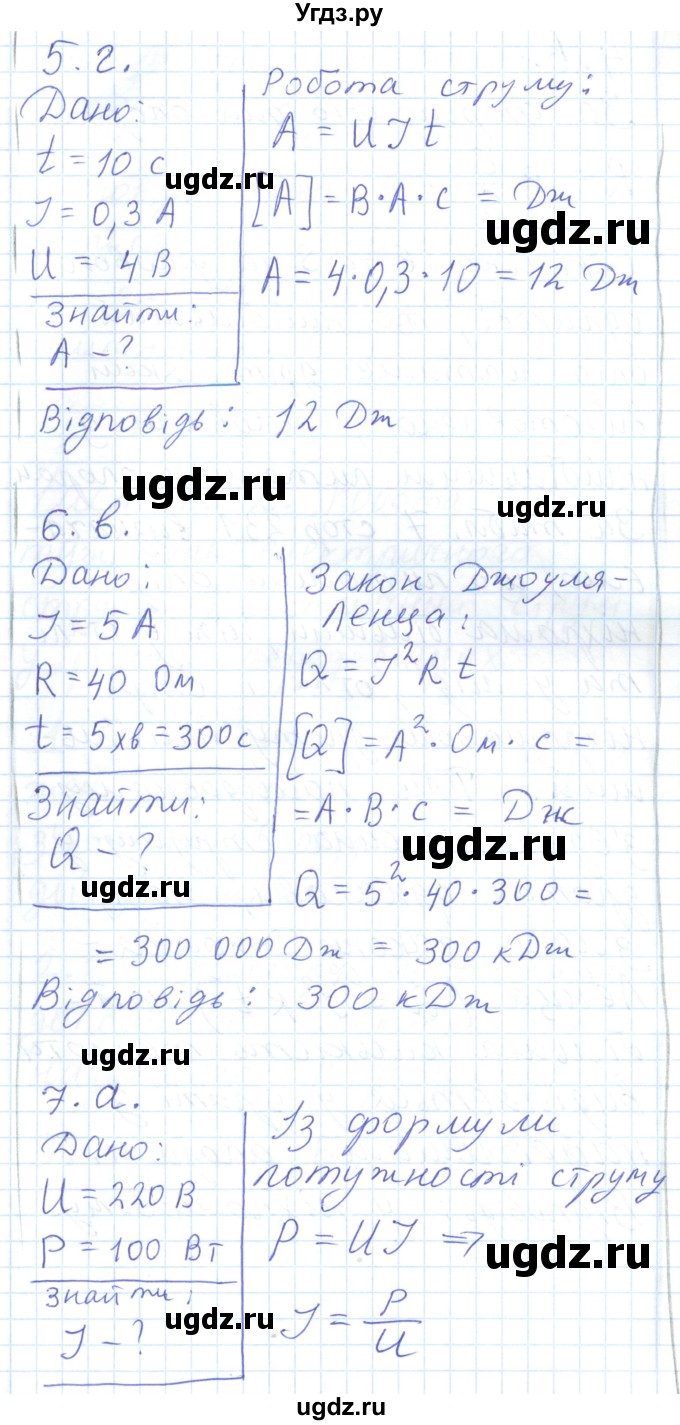 Угдз.ру
5.г.
Дано:
t = 10 с
I = 0,3 А
U = 4 В
Знайти:
А - ?
Робота струму:
A = UIt
[A] = В·А·с = Дж
A = 4·0,3·10 = 12 Дж
Відповідь: 12 Дж
ugdz.ru
ugdz.ru
ugdz.ru
ugdz.ru
6.в.
Дано:
I = 5 А
R = 40 Ом
t = 5хв = 300с
Знайти:
Q - ?
Закон Джоуля-
Ленца:
Q = I²Rt
[Q] = А²·Ом·с =
= А·В·с = Дж
Q = 5²·40·300 =
= 300 000 Дж = 300 кДж
Відповідь: 300 кДж
ugdz.ru
ugdz.ru
ugdz.ru
7.а.
Дано:
U = 220 В
P = 100 Вт
Знайти:
I - ?
Із формули
потужності струму
P = UI ⇒
I = P/U
ugdz.ru
ugdz.ru
ugdz.ru